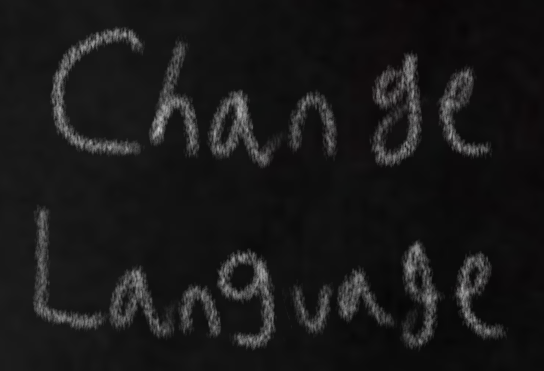 Change
Language